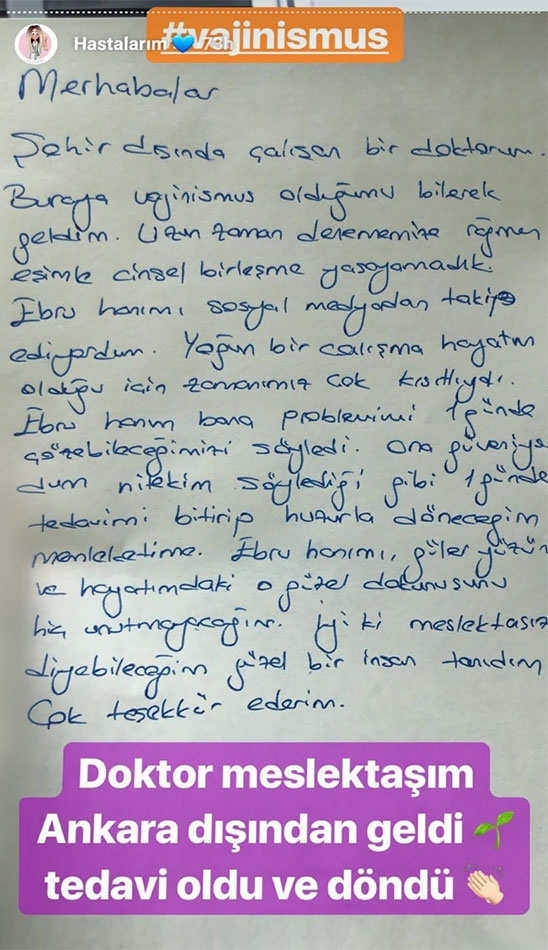 #vajinismus
Hastalarım 💙 73h
Merhabalar
Şehir dışında çalışan bir doktorum.
Buraya vajinismus olduğumu bilerek
geldim. Uzun zaman denememize rağmen
eşimle cinsel birleşme yaşayamadık.
Ebru hanımı sosyal medyadan takip
ediyordum. Yoğun bir çalışma hayatım
olduğu için zamanımız çok kısıtlıydı.
Ebru hanım bana problemimi 1 günde
çözebileceğimizi söyledi. Ona güveniyo
dum nitekim söylediği gibi 1 günde
tedavimi bitirip huzurla döneceğim
memleketime. Ebru hanımı, güler yüzün
ve hayatımdaki o güzel dokunuşunu
hiç unutmayacağım. İyi ki meslektaşım
diyebileceğim güzel bir insan tanıdım
Çok teşekkür ederim.
Doktor meslektaşım
Ankara dışından geldi 🌱
tedavi oldu ve döndü 👏🏻